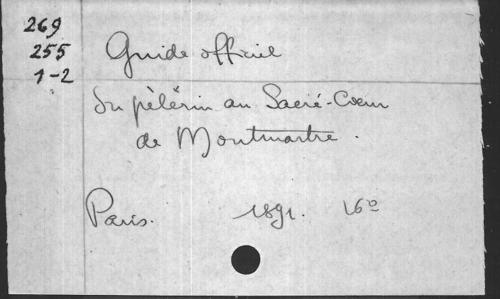 269
255
1-2
Guide officiel
du pèlérin au Sacré-Cœur
de Montmartre.
Paris. 1891. 16º